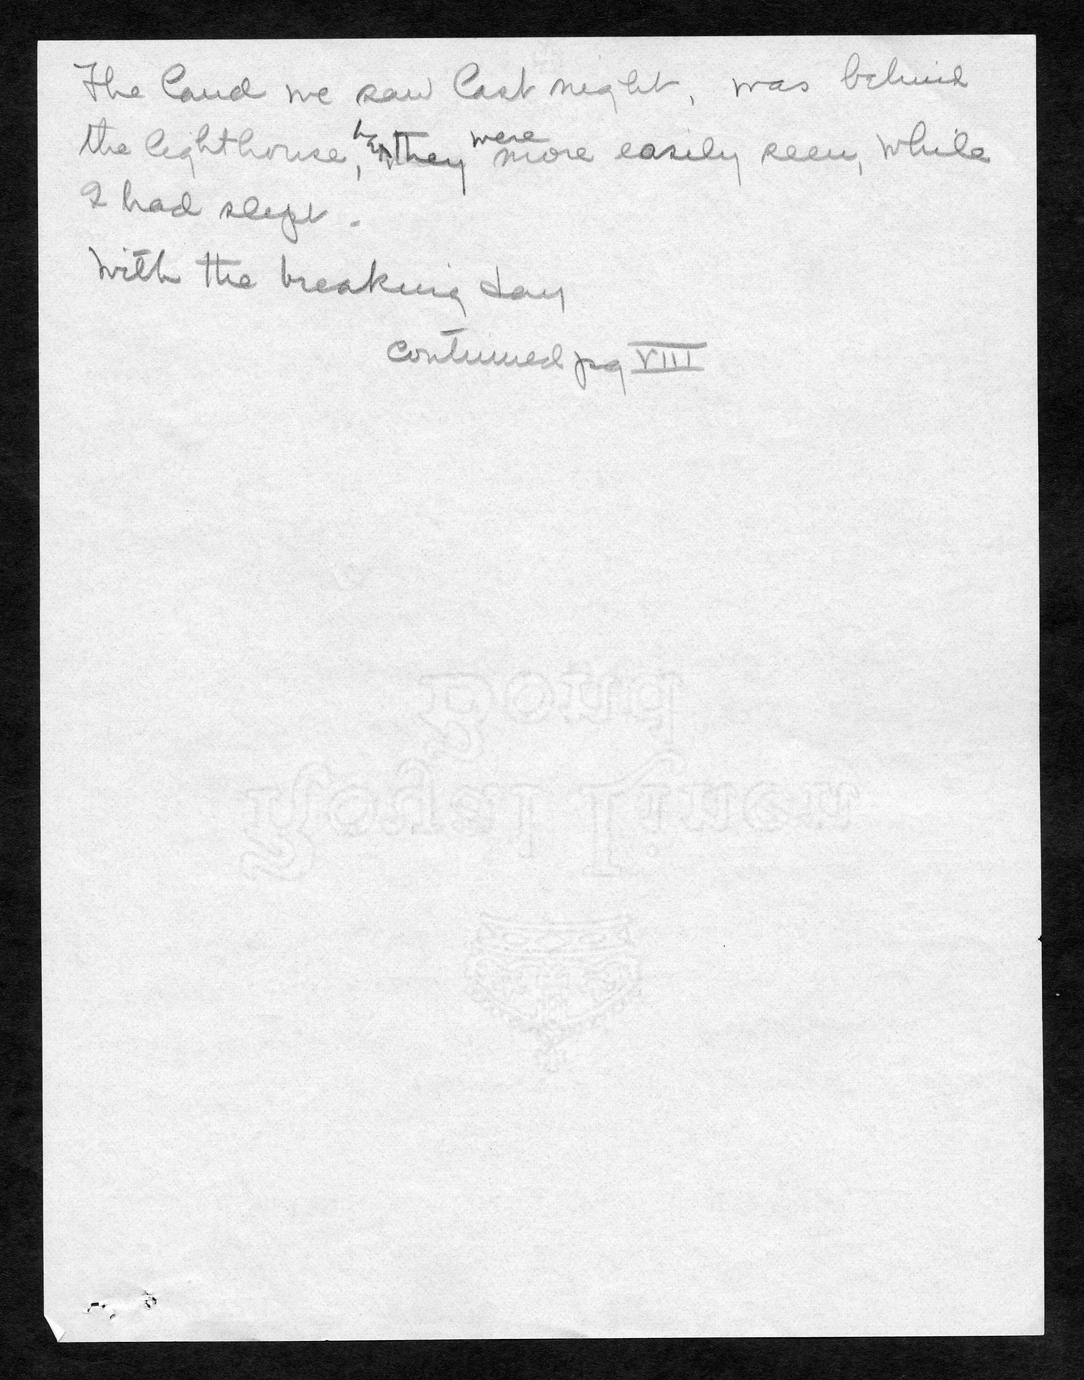 The land we saw last night, was behind
the lighthouse, they were more easily seen, while
I had slept.
With the breaking day
continued pg VIII